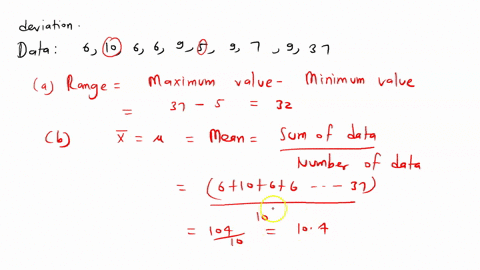 deviation.
Data: 6, 10, 6, 6, 9, 5, 9, 7, 9, 37
(a) Range = Maximum value - Minimum value
= 37 - 5 = 32
(b) x̄ = μ = Mean = Sum of data
Number of data
= (6+10+6+6 ---- 37)
10
= 104/10 = 10.4